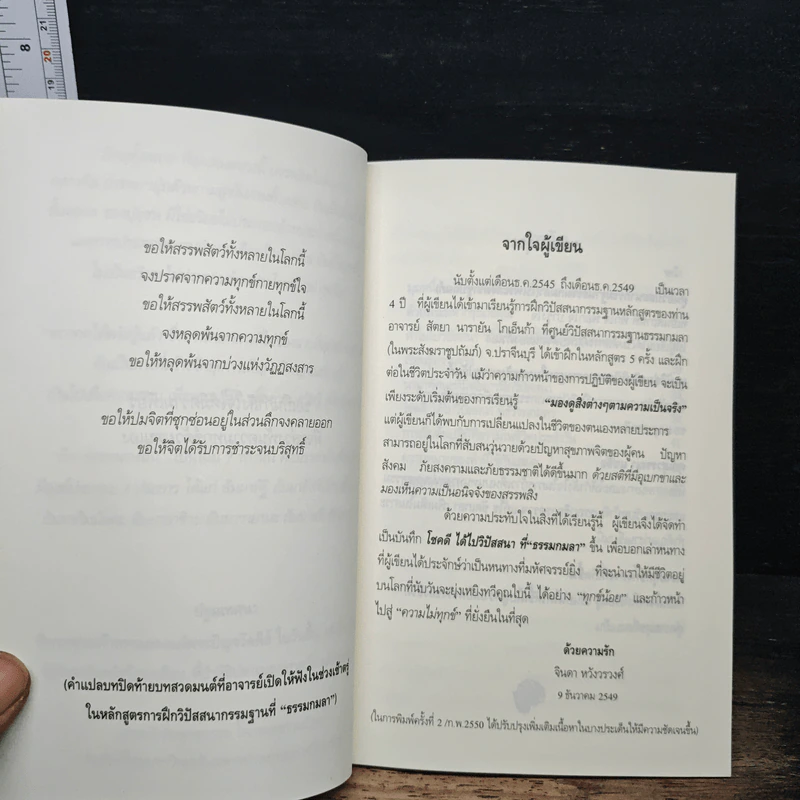 8
21
20
19
ขอให้สรรพสัตว์ทั้งหลายในโลกนี้
จงปราศจากความทุกข์กายทุกข์ใจ
ขอให้สรรพสัตว์ทั้งหลายในโลกนี้
จงหลุดพ้นจากความทุกข์
ขอให้หลุดพ้นจากบ่วงแห่งวัฏฏสงสาร
ขอให้ปมจิตที่ซุกซ่อนอยู่ในส่วนลึกจงคลายออก
ขอให้จิตได้รับการชำระจนบริสุทธิ์
(คำแปลบทปิดท้ายบทสวดมนต์ที่อาจารย์เปิดให้ฟังในช่วงเช้าตรู่
ในหลักสูตรการฝึกวิปัสสนากรรมฐานที่ “ธรรมกมลา”)
จากใจผู้เขียน
นับตั้งแต่เดือนธ.ค.2545 ถึงเดือนธ.ค.2549 เป็นเวลา
4 ปี ที่ผู้เขียนได้เข้ามาเรียนรู้การฝึกวิปัสสนากรรมฐานหลักสูตรของท่าน
อาจารย์ สัตยา นารายัน โกเอ็นก้า ที่ศูนย์วิปัสสนากรรมฐานธรรมกมลา
(ในพระสังฆราชูปถัมภ์) จ.ปราจีนบุรี ได้เข้าฝึกในหลักสูตร 5 ครั้ง และฝึก
ต่อในชีวิตประจำวัน แม้ว่าความก้าวหน้าของการปฏิบัติของผู้เขียน จะเป็น
เพียงระดับเริ่มต้นของการเรียนรู้ “มองดูสิ่งต่างๆตามความเป็นจริง”
แต่ผู้เขียนก็ได้พบกับการเปลี่ยนแปลงในชีวิตของตนเองหลายประการ
สามารถอยู่ในโลกที่สับสนวุ่นวายด้วยปัญหาสุขภาพจิตของผู้คน ปัญหา
สังคม ภัยสงครามและภัยธรรมชาติได้ดีขึ้นมาก ด้วยสติที่มีอุเบกขาและ
มองเห็นความเป็นอนิจจังของสรรพสิ่ง
ด้วยความประทับใจในสิ่งที่ได้เรียนรู้นี้ ผู้เขียนจึงได้จัดทำ
เป็นบันทึก โชคดี ได้ไปวิปัสสนา ที่“ธรรมกมลา” ขึ้น เพื่อบอกเล่าหนทาง
ที่ผู้เขียนได้ประจักษ์ว่าเป็นหนทางที่มหัศจรรย์ยิ่ง ที่จะนำเราให้มีชีวิตอยู่
บนโลกที่นับวันจะยุ่งเหยิงทวีคูณใบนี้ ได้อย่าง “ทุกข์น้อย” และก้าวหน้า
ไปสู่ “ความไม่ทุกข์” ที่ยั่งยืนในที่สุด
ด้วยความรัก
จินดา หวังวรวงศ์
9 ธันวาคม 2549
(ในการพิมพ์ครั้งที่ 2 /ก.พ.2550 ได้ปรับปรุงเพิ่มเติมเนื้อหาในบางประเด็นให้มีความชัดเจนขึ้น)